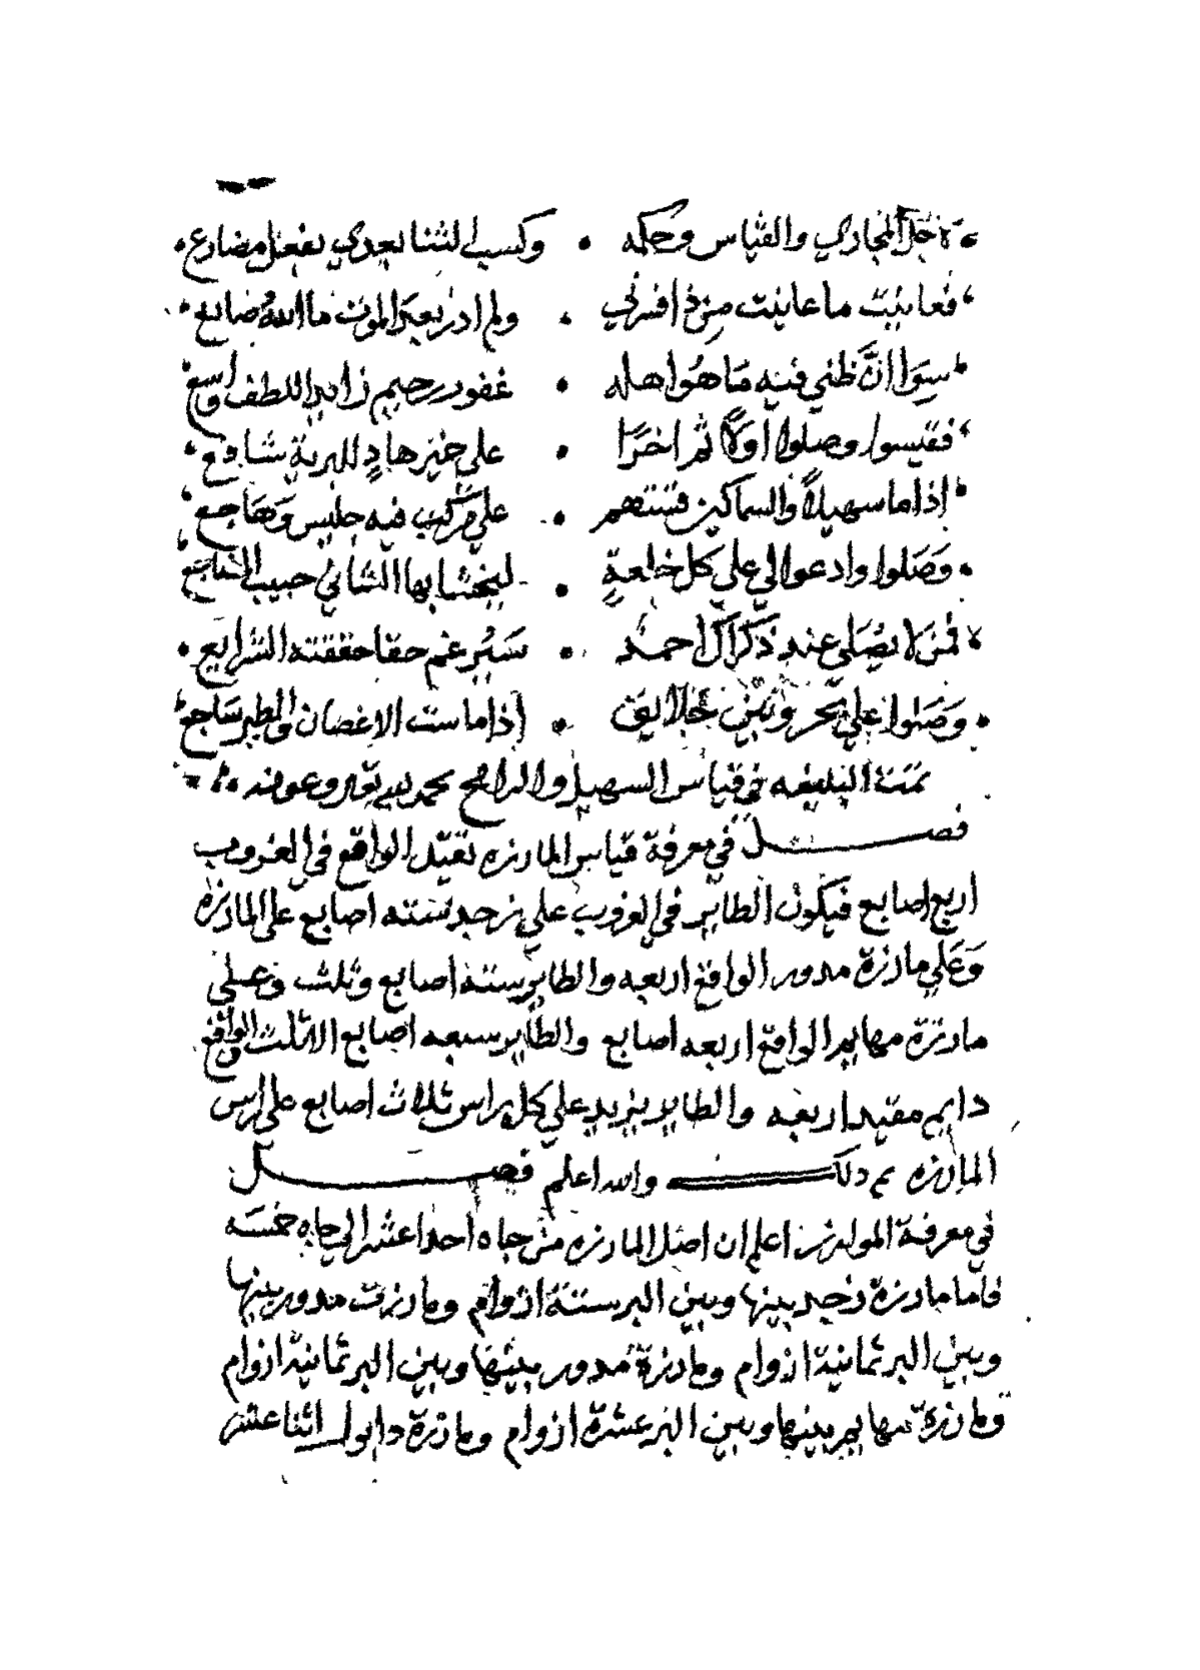 خلا المجاري والقياس وحكمه • وكسبي لثنا بعدي بفعل مضارع
فعاينت ما عاينت من ذا فسرلي • ولم ادر بعد الموت ما الله صانع
سوا ان ظني فيه ما هو اهله • غفور رحيم زايد اللطف واسع
فقيسوا وصلوا اولا ثم اخرا • على خير هاد للبرية شافع
اذا ما سهيلا والسماكين قستهم • على مركب فيه جليس وهاجع
وصلوا وادعوا لي على كل خلعة • ليخشا بها الشاني حبيب
فمن لا يصلي عند ذكر ال احمد • سيرغم حقا حققته الشرايع
وصلوا على بحر وبين خلايق • اذا ماست الاغصان والطير ساجع
تمت البليغه في قياس السهيل والرامح بحمد الله وعونه
فصل في معرفة قياس المارزه تقيد الواقع في الغروب
اربع اصابع فيكون الطاير في الغروب على زجد سته اصابع على المارزة
وعلى مارزة مدور الواقع اربعه والطاير سته اصابع وثلث وعلى
مارزة مهايم الواقع اربعه اصابع والطاير سبعه اصابع الا ثلث والواقع
دايم مقيد اربعه والطاير يزيد على كل راس ثلاث اصابع على راس
المارزه تم ذلك والله اعلم فصل
في معرفة الموارز اعلم ان اصل المارزه من جاه احدا عشر الى جاه خمسه
فاما مارزة زجد بينها وبين البر ستة ازوام ومارزت مدور بينها
وبين البر ثمانية ازوام ومارزة مدور بينها وبين البر ثمانية ازوام
ومارزة مهايم بينها وبين البر عشرة ازوام ومارزة دابول اثنا عشر